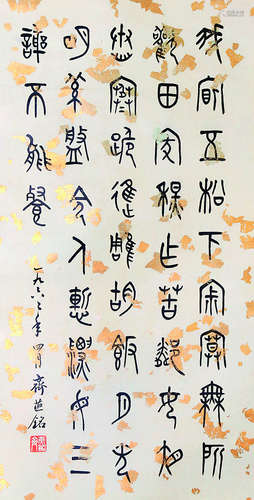 我宿五松下寂寥無所
歡田家秋作苦鄰女夜
舂寒跪進雕胡飯月光
明素盤令人慚漂母三
謝不能餐
一九六三年四月齊燕銘